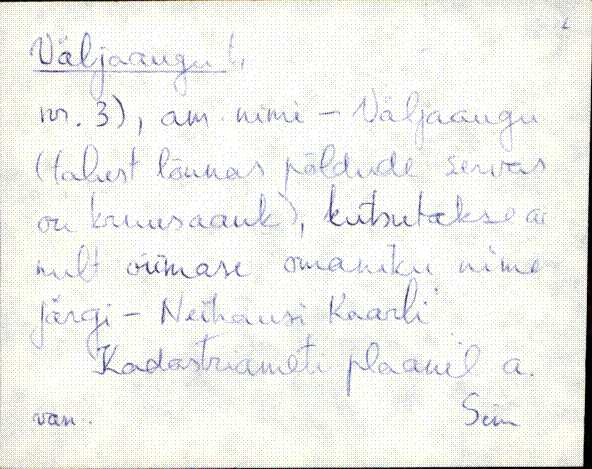 Väljaangu t.
nr. 3), am. nimi – Väljaangu
(talust lõunas põldude servas
on kruusaauk), kutsutakse ai
nult viimase omaniku nime
järgi – Neihausi Kaarli
Kadastriameti plaanil a.
van. Sim